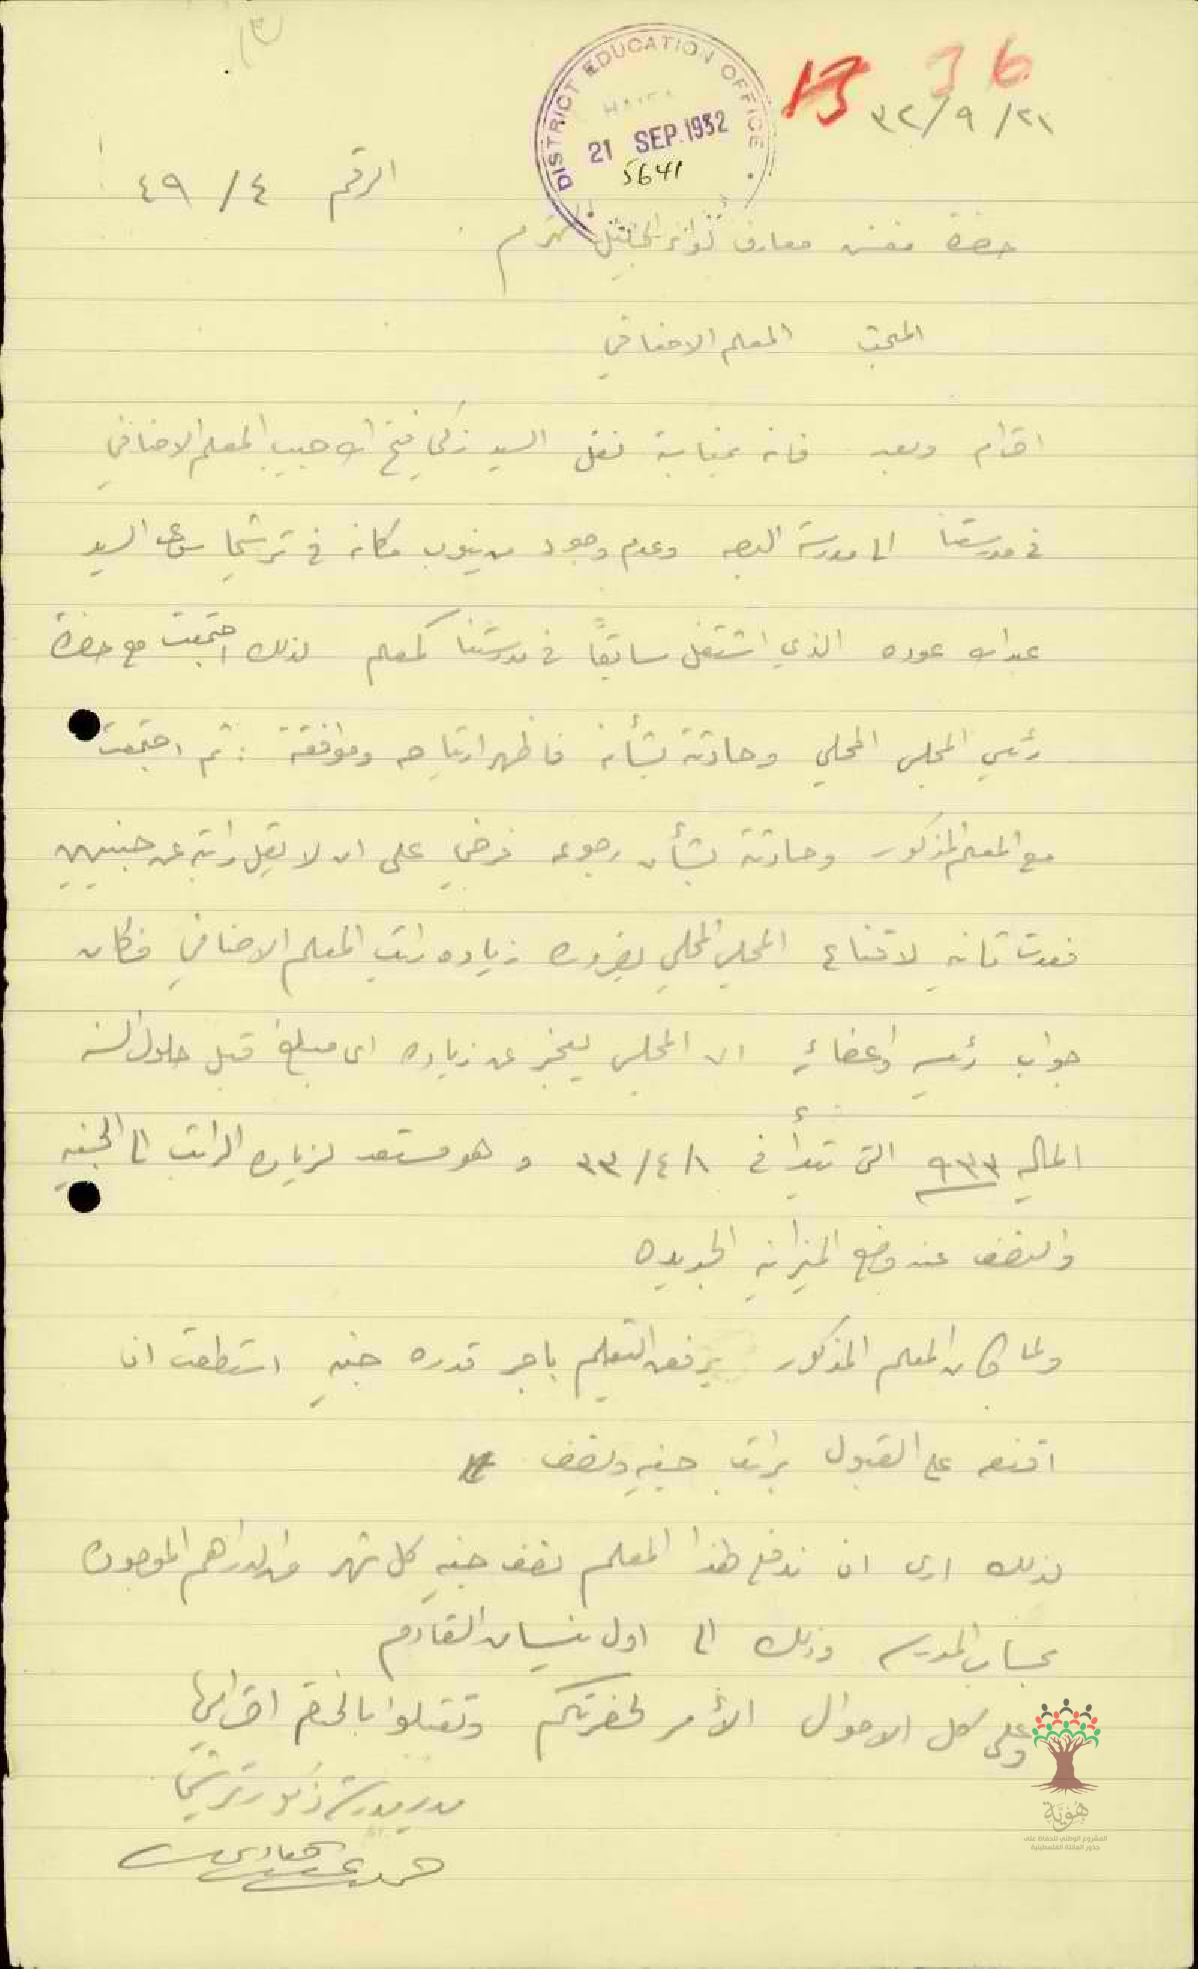 13 36
٢١/٩/٣٢
DISTRICT EDUCATION OFFICE
HAIFA
21 SEP. 1932
5641
الرقم ٤/٤٩
حضرة مفتش معارف لواء الجليل المحترم
المبحث المعلم الاضافي
احترام وبعد فانه بمناسبة نقل السيد زكي فتح الله حبيب المعلم الاضافي
في مدرستنا الى مدرسة البصه وعدم وجود من ينوب مكانه في ترشيحا سوى السيد
عبدالله عوده الذي اشتغل سابقاً في مدرستنا كمعلم لذلك اجتمعت مع حضرة
رئيس المجلس المحلي وحادثته بشأنه فاظهر ارتياحه وموافقته : ثم اجتمعت
مع المعلم المذكور وحادثته بشأن رجوعه فرضي على ان لا يقل راتبه عن جنيهين
فعدت ثانيه لاقناع المجلس المحلي بضروره زياده راتب المعلم الاضافي فكان
جواب رئيسه واعضائه ان المجلس يعجز عن زياده اى مبلغ قبل حلول السنه
الماليه ٩٣٣ التى تبتدأ في ٣٣/٤/١ و هو مستعد لزياده الراتب الى الجنيه
والنصف عند وضع الميزانيه الجديده
ولما كان المعلم المذكور يرفض التعليم باجر قدره جنيه استطعت ان
اقنعه على القبول براتب جنيه ونصف
لذلك ارى ان ندفع لهذا المعلم نصف جنيه كل شهر من الدراهم الموجوده
بحساب المدرسه وذلك الى اول نيسان القادم
وعلى كل الاحوال الأمر لحضرتكم وتقبلوا بالختام احترامي
مدير مدرسة ذكور ترشيحا
هُوِيَّة
المشروع الوطني للحفاظ على
جذور العائلة الفلسطينية